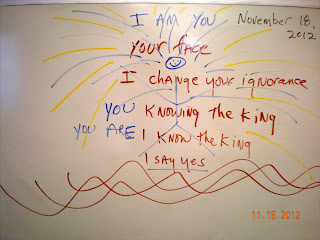 I AM YOU
November 18,
2012
your face
I change your ignorance
YOU KNOWING THE KING
YOU ARE I KNOW THE KING
I SAY YES
11.18.2012